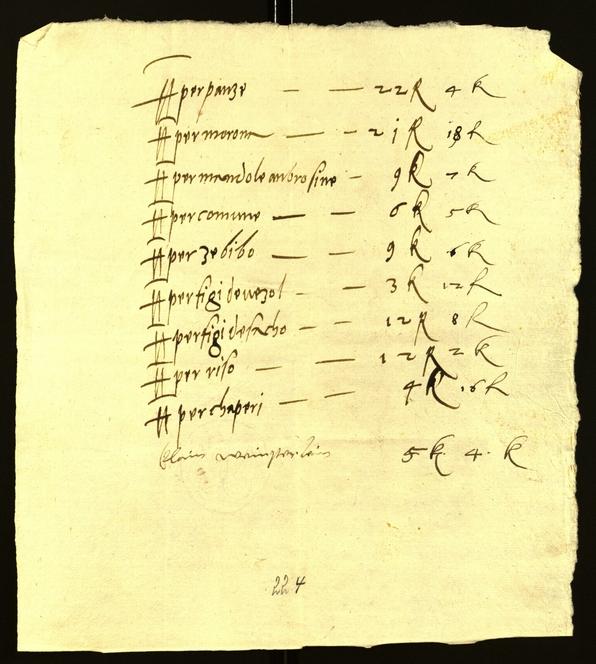 # per panze — — 22 R 4 k
# per morom — — 21 R 18 k
# per mandole anbrosine — 9 R 7 k
# per comune — — 6 R 5 k
# per zebibo — — 9 R 6 k
# per figi de vezol — — 3 R 12 k
# per figi de sacho — — 12 R 8 k
# per riso — — 12 R 2 k
# per chaperi — — 4 R 16 k
Clain weinperlein 5 k. 4. k
224